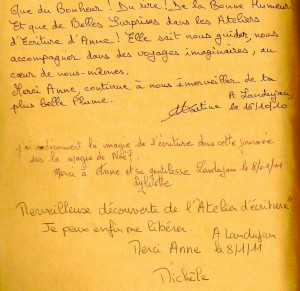 Que du Bonheur ! Du rire ! De la Bonne Humeur
Et que de Belles Surprises dans les Ateliers
d'Ecriture d'Anne ! Elle sait nous guider, nous
accompagner dans des voyages imaginaires, au
cœur de nous-mêmes.
Merci Anne, continue à nous émerveiller de ta
plus belle Plume.
A Landujan
Martine le 16/10/10
j'ai découvert la magie de l'écriture dans cette journée
sur la magie de Noël.
Merci à Anne et sa gentillesse Landujan le 8/01/11
Merveilleuse découverte de l'"Atelier d'écriture"
Je peux enfin me libérer. A Landujan
Merci Anne le 8/1/11
Michèle